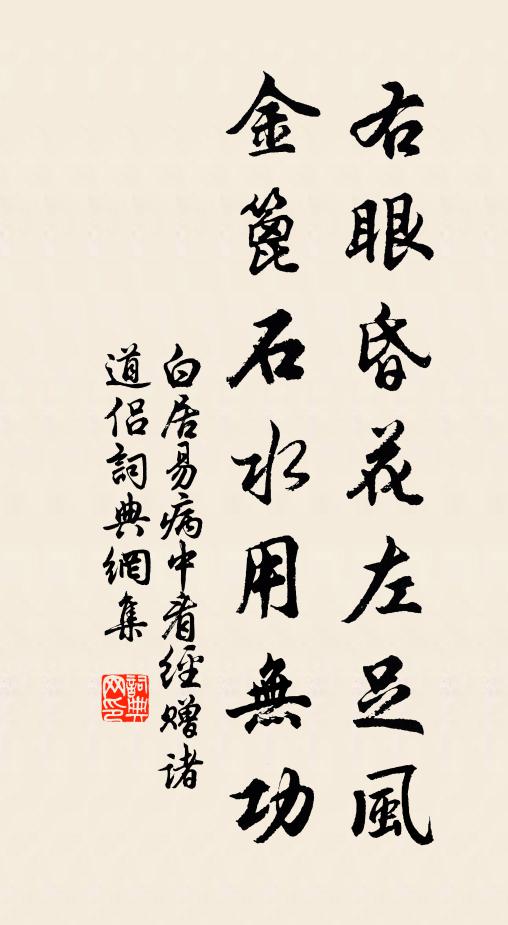 右眼昏花左足風
金篦石水用無功
白居易病中看經赠诸
道侣詞典網集
詞典
网印